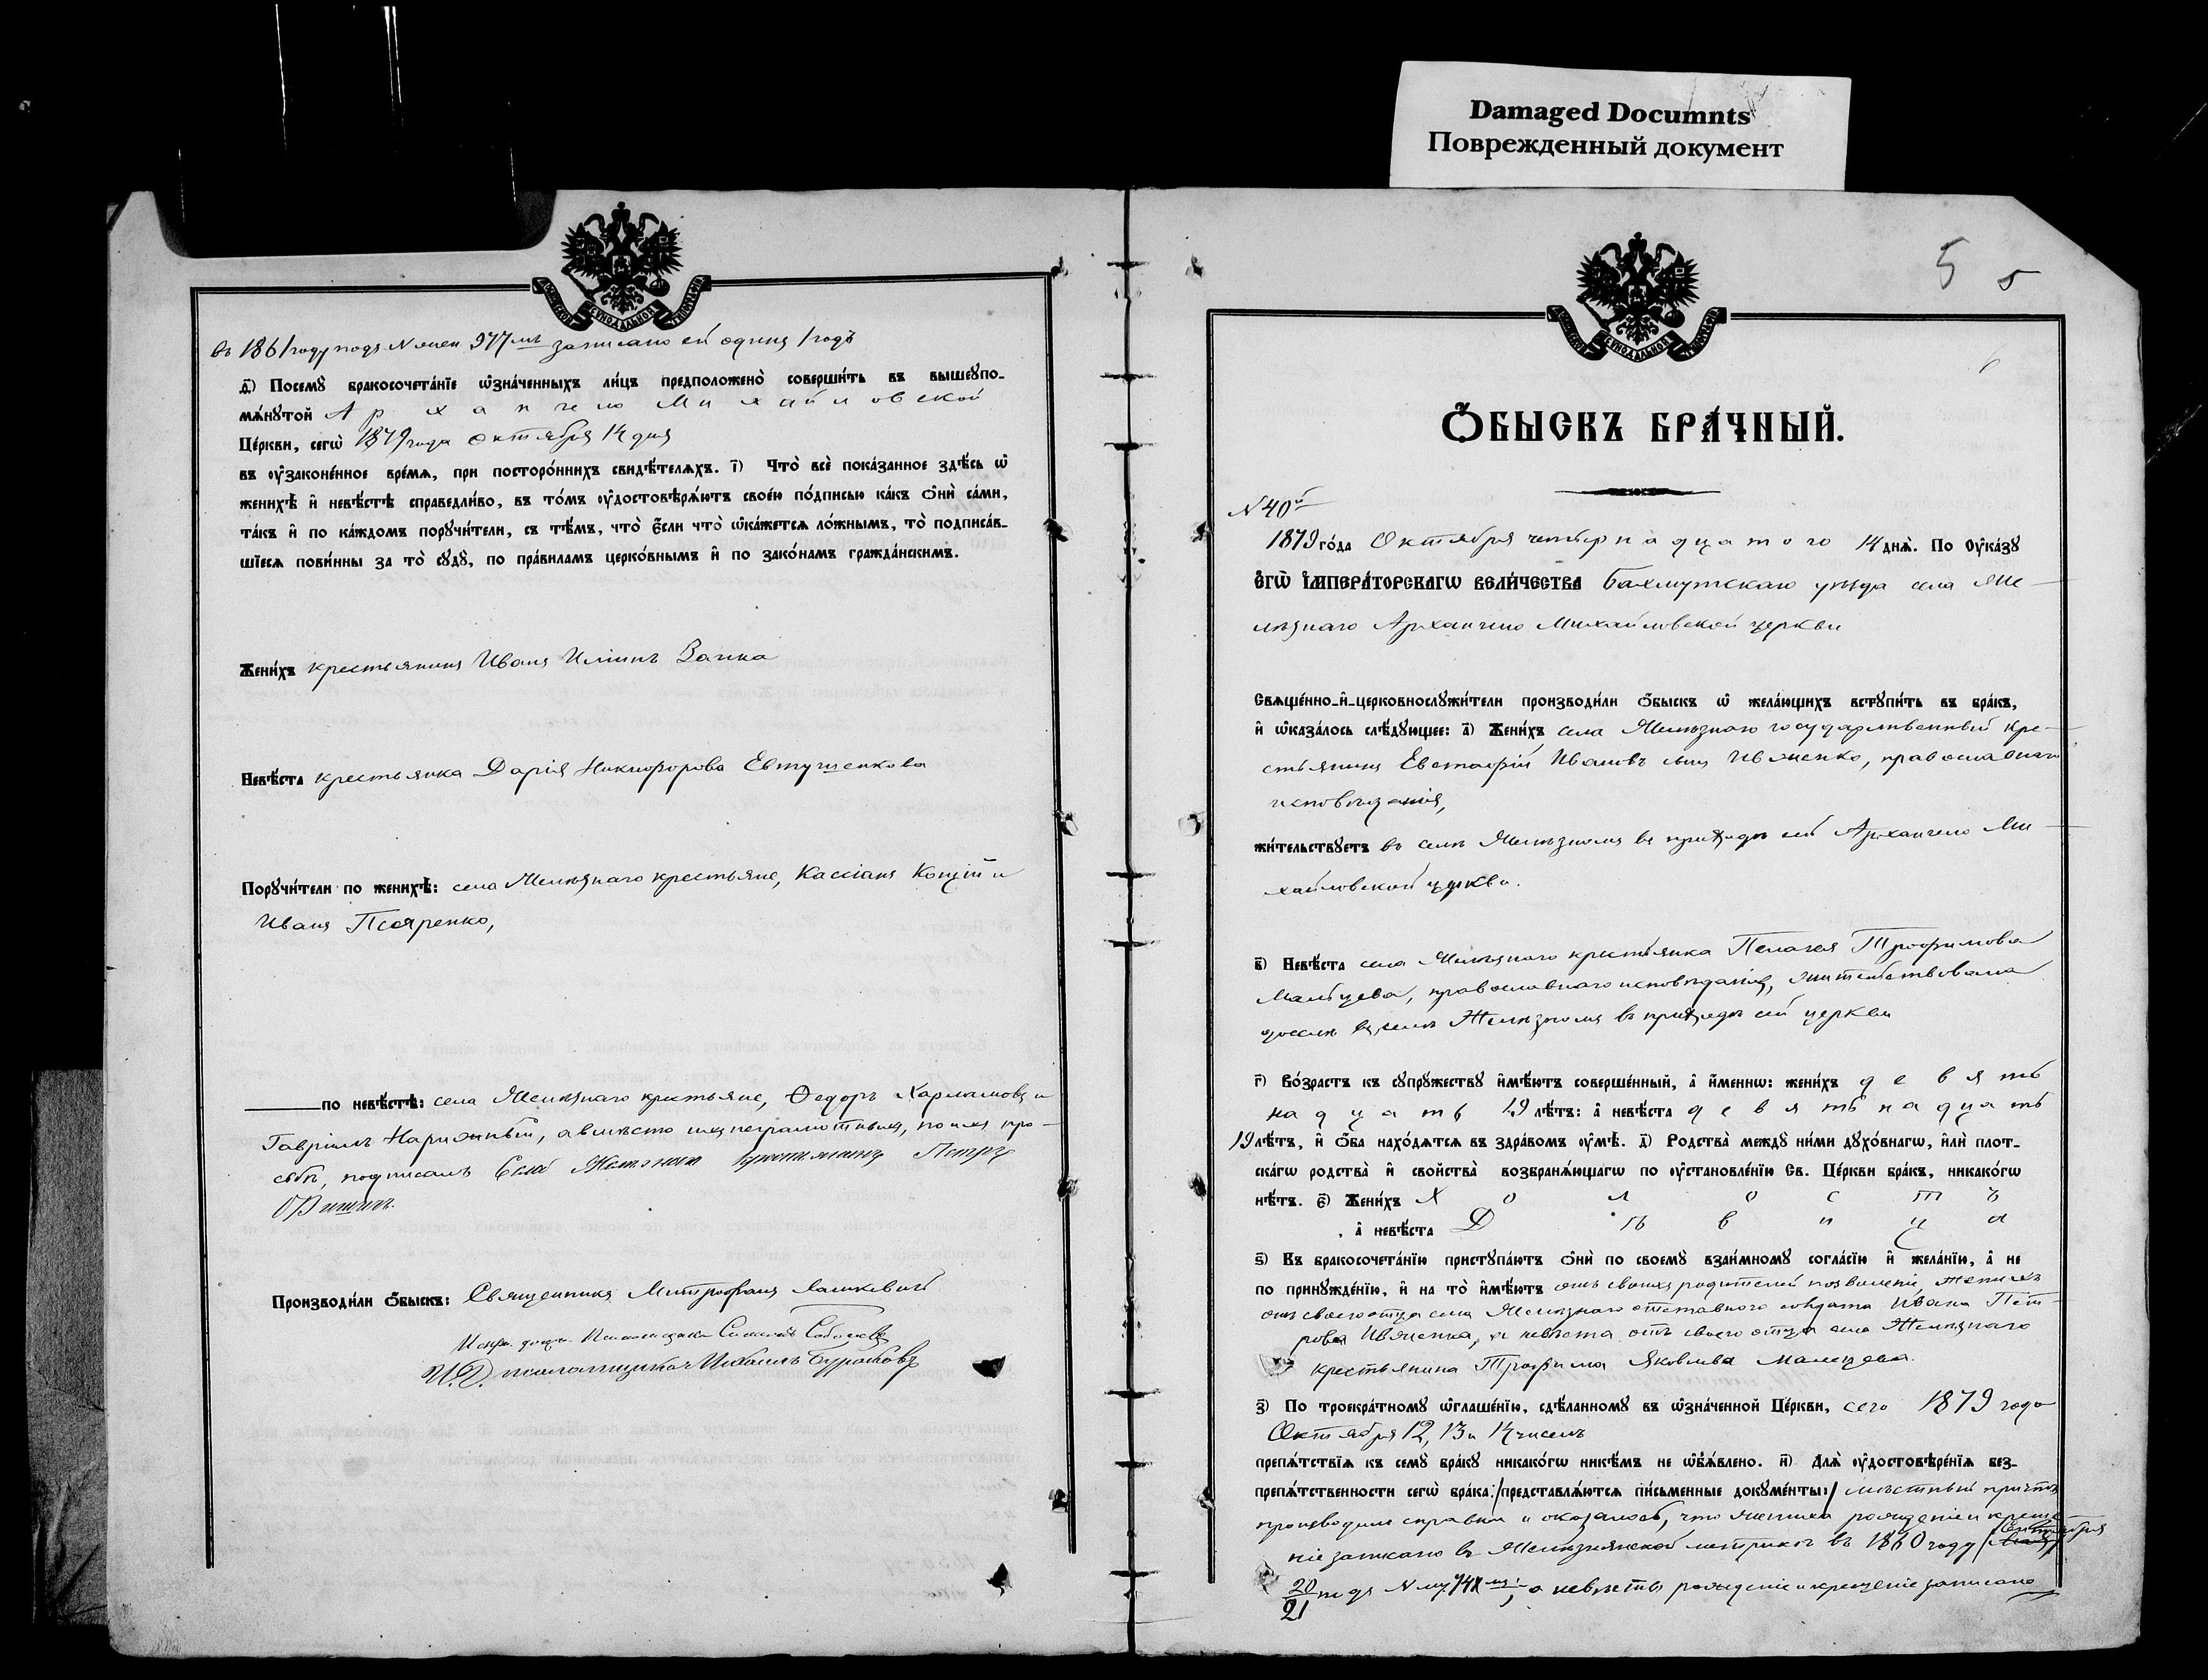 Damaged Documnts
Поврежденный документ
въ 1861 году подъ № женс 977мъ записано ей одинъ 1 годъ
д҃і) Посемꙋ̀ бракосочета́нїе ѡ҆зна́ченныхъ ли́цъ предположено̀ соверши́ть въ вышеꙋпо-
мѧ́нꙋтой Архангело Михайловской
Це́ркви, сегѡ̀ 1879 года Октября 14 дня
въ ᲂу҆законе́нное вре́мѧ, при посторо́ннихъ свидѣ́телѧхъ. і҃) Что̀ всѐ пока́занное здѣ́сь ѡ҆
женихѣ̀ и҆ невѣ́стѣ справедли́во, въ то́мъ ᲂу҆достовѣрѧ́ютъ свое́ю по́дписью ка́къ ѻ҆нѝ са́ми,
та́къ и҆ по ка́ждомъ порꙋчи́тели, съ тѣ́мъ, что̀ є҆́сли что̀ ѡ҆ка́жетсѧ ло́жнымъ, то̀ подписа́в-
шїесѧ пови́нны за то̀ сꙋдꙋ̀, по пра́виламъ церко́внымъ и҆ по зако́намъ гражда́нскимъ.
Жени́хъ крестьянинъ Иванъ Ильинъ Заика
Невѣ́ста крестьянка Дарія Никифорова Евтушенкова
Порꙋчи́тели по женихѣ̀: села Желѣзнаго крестьяне, Кассіанъ и
Иванъ Псяренко,
по невѣ́стѣ: села Желѣзнаго крестьяне, Федоръ Харламовъ и
Гавріилъ Нарижный, а вмѣсто ихъ неграмотныхъ, по ихъ про-
сьбѣ, подписалъ Села Желѣзнаго крестьянинъ Петръ
Производи́ли ѻ҆́быскъ: Священникъ Митрофанъ
Испр. долж. Псаломщика Симеонъ Соболевъ
И.Д. псаломщика Михаилъ Бураковъ
5 5
6
МОСКОВСКОЙ СѴНОДАЛЬНОЙ ТИПОГРАФІИ
Ѻ҆́БЫСКЪ БРА́ЧНЫЙ.
№ 40й
1879 го́да Октября четырнадцатого 14 днѧ̀. По ᲂу҆ка́зꙋ
Є҆ГѠ̀ И҆МПЕРА́ТОРСКАГѠ ВЕЛИ́ЧЕСТВА Бахмутскаго уѣзда села Же-
лѣзнаго Архангело Михайловской церкви
Свѧще́нно-и҆-церковнослꙋжи́тели производи́ли ѻ҆́быскъ ѡ҆ жела́ющихъ встꙋпи́ть въ бра́къ,
и҆ ѡ҆каза́лось слѣ́дꙋющее: а҃) Жени́хъ села Желѣзнаго государственный кре-
стьянинъ Евстафій Ивановъ сынъ Ивженко, православнаго
исповѣданія,
жи́тельствꙋетъ въ селѣ Желѣзномъ въ приходѣ сей Архангело Ми-
хайловской церкви.
в҃) Невѣ́ста села Желѣзнаго крестьянка Пелагея Трофимова
Мальцева, православнаго исповѣданія, жительствовала
доселѣ въ селѣ Желѣзномъ въ приходѣ сей церкви
г҃) Во́зрастъ къ сꙋпрꙋ́жествꙋ и҆мѣ́ютъ соверше́нный, а҆ и҆́меннѡ: жени́хъ девять
надцать 19 лѣ́тъ: а҆ невѣ́ста девятьнадцать
19 лѣ́тъ, и҆ ѻ҆́ба нахо́дѧтсѧ въ здра́вомъ ᲂу҆мѣ̀. д҃) Родства̀ междꙋ̀ ни́ми дꙋхо́внагѡ, и҆лѝ плот-
ска́гѡ родства̀ и҆ свойства̀ возбранѧ́ющагѡ по ᲂу҆становле́нїю Св. Це́ркви бра́къ, никако́гѡ
нѣ́тъ. є҃) Жени́хъ Холостъ
, а҆ невѣ́ста Дѣвица
ѕ҃) Къ бракосочета́нїю пристꙋпа́ютъ ѻ҆нѝ по своемꙋ̀ взаи́мномꙋ согла́сїю и҆ жела́нїю, а҆ не
по принꙋжде́нїю, и҆ на то̀ и҆мѣ́ютъ отъ своихъ родителей позволеніе, женихъ
отъ своего отца села Желѣзнаго отставного солдата Ивана Пет-
рова Ивженка, а невѣста отъ своего отца села Желѣзнаго
крестьянина Трофима Яковлева Мальцева.
з҃) По троекра́тномꙋ ѡ҆глаше́нїю, сдѣ́ланномꙋ въ ѡ҆зна́ченной Це́ркви, сего 1879 года
Октября 12, 13 и 14 чиселъ
препѧ́тствїѧ къ семꙋ̀ бра́кꙋ никако́гѡ никѣ́мъ не ѡ҆бъѧ́влено. и҃) Длѧ̀ ᲂу҆достовѣре́нїѧ без-
препѧ́тственности сегѡ̀ бра́ка: /представлѧ́ютсѧ пи́сьменные докꙋме́нты:/ мѣстный причтъ
производилъ справки и оказалось, что жениха рожденіе и креще
ніе записано въ Желѣзнянской метрикѣ въ 1860 году Сентября
20/21 подъ № муж, а невѣсты рожденіе и крещеніе записано